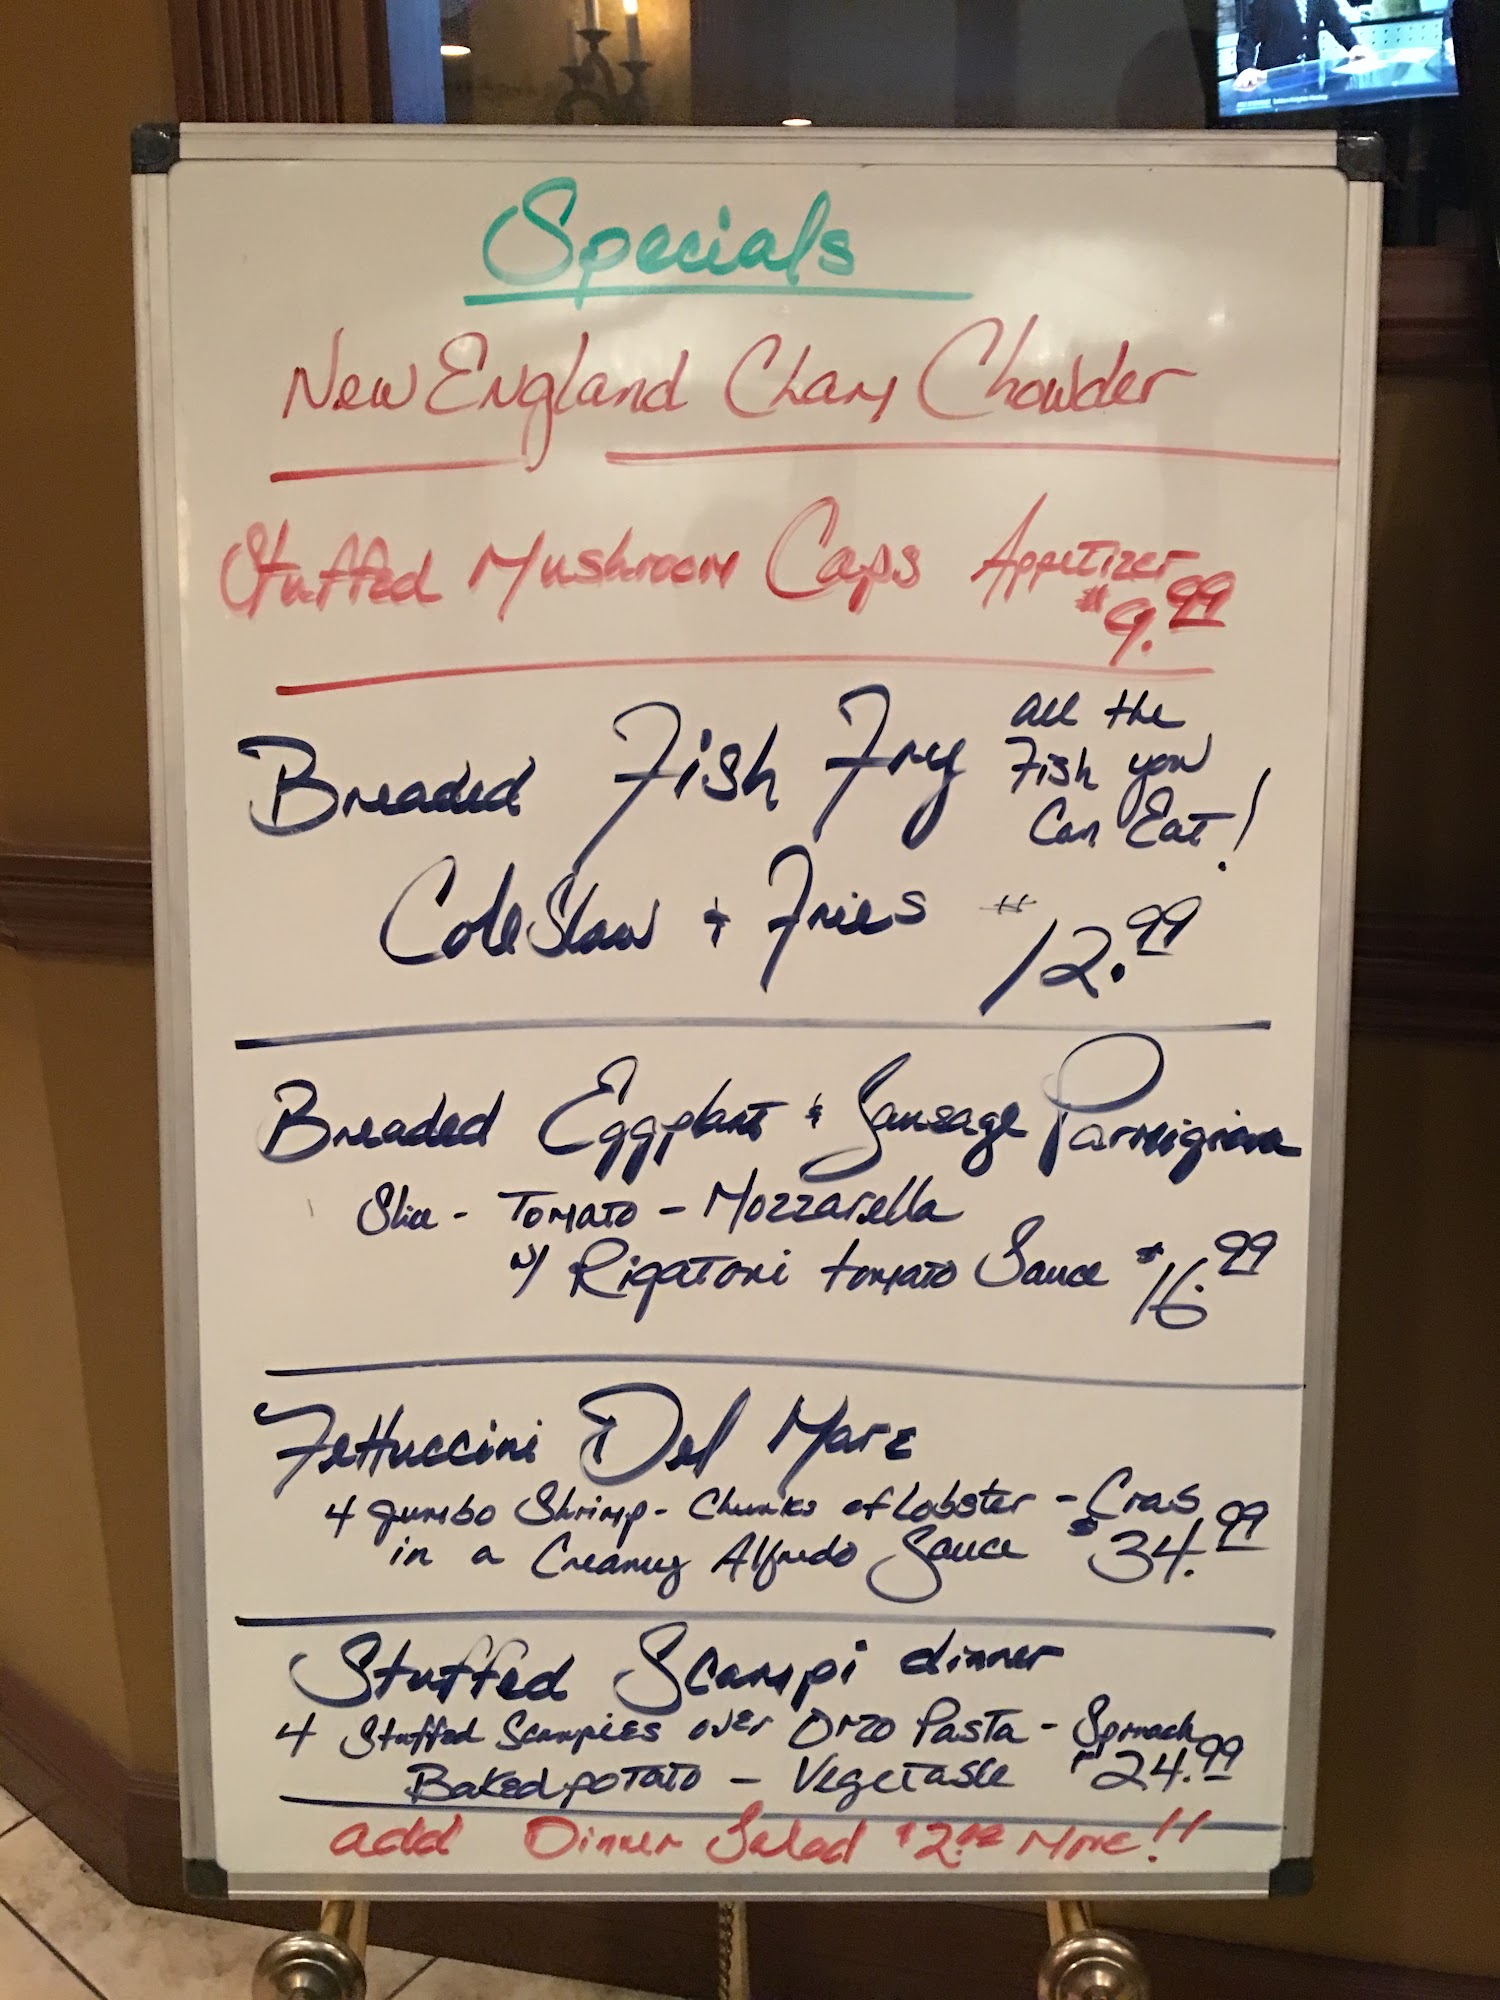 Specials
New England Clam Chowder
Stuffed Mushroom Caps Appetizer
$9.99
Breaded Fish Fry all the
Fish you
Can Eat!
Cole Slaw + Fries #12.99
Breaded Eggplant & Sausage Parmigiana
Slice - Tomato - Mozzarella
w/ Rigatoni tomato Sauce $16.99
Fettuccini Del Mare
4 Jumbo Shrimp - Chunks of Lobster - Crab
in a Creamy Alfredo Sauce $34.99
Stuffed Scampi dinner
4 Stuffed Scampies over Orzo Pasta - Spinach
Baked potato - Vegetable $24.99
add Dinner Salad $2.00 More!!